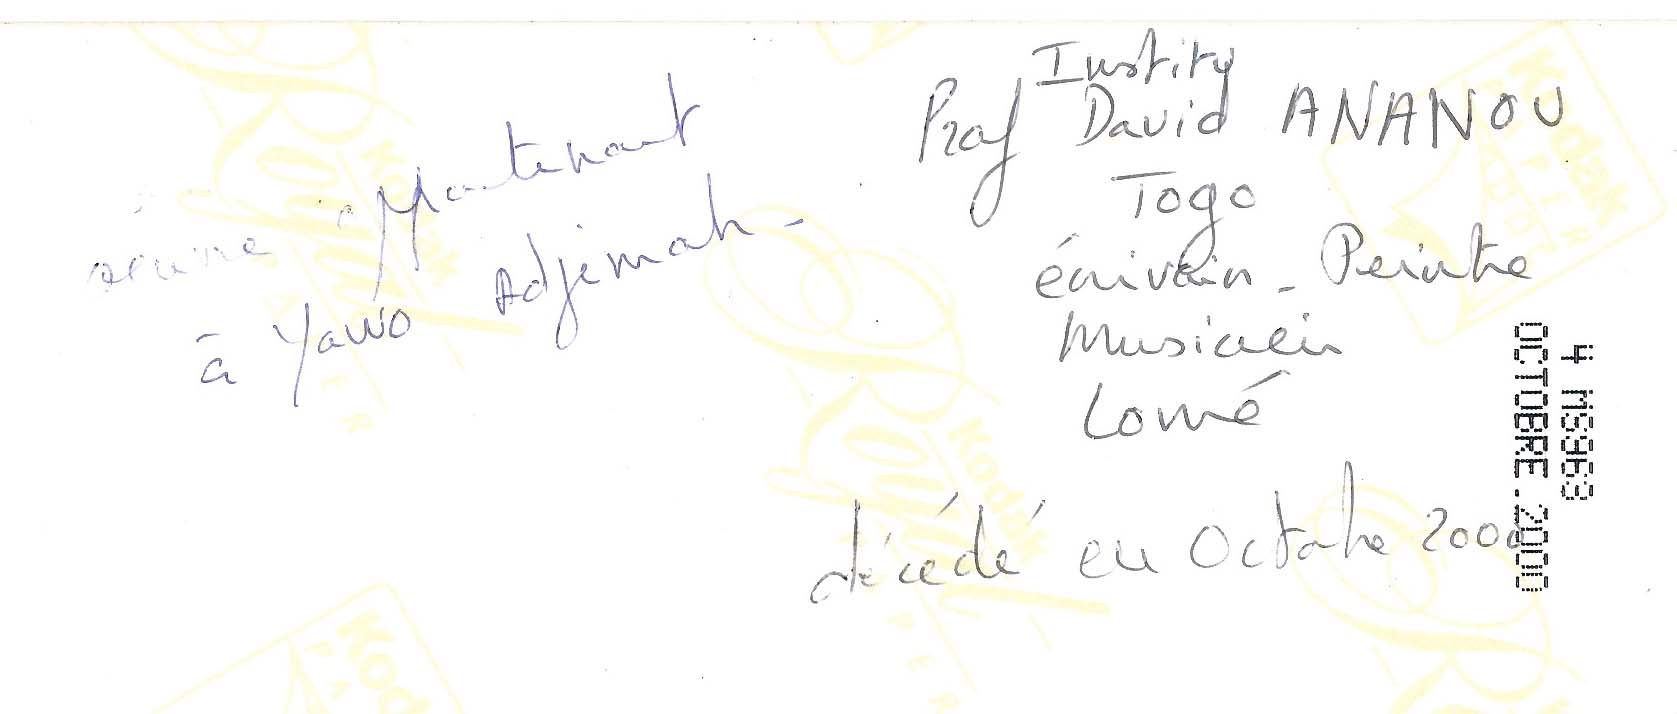 Maintenant
à Yawo Adjimah -
Institu
Prof David ANANOU
Togo
écrivain - Peintre
Musicien
Lomé
décédé en Octobre 2000
4 MS963
OCTOBRE.2000
Kodak
Royal
PAPER